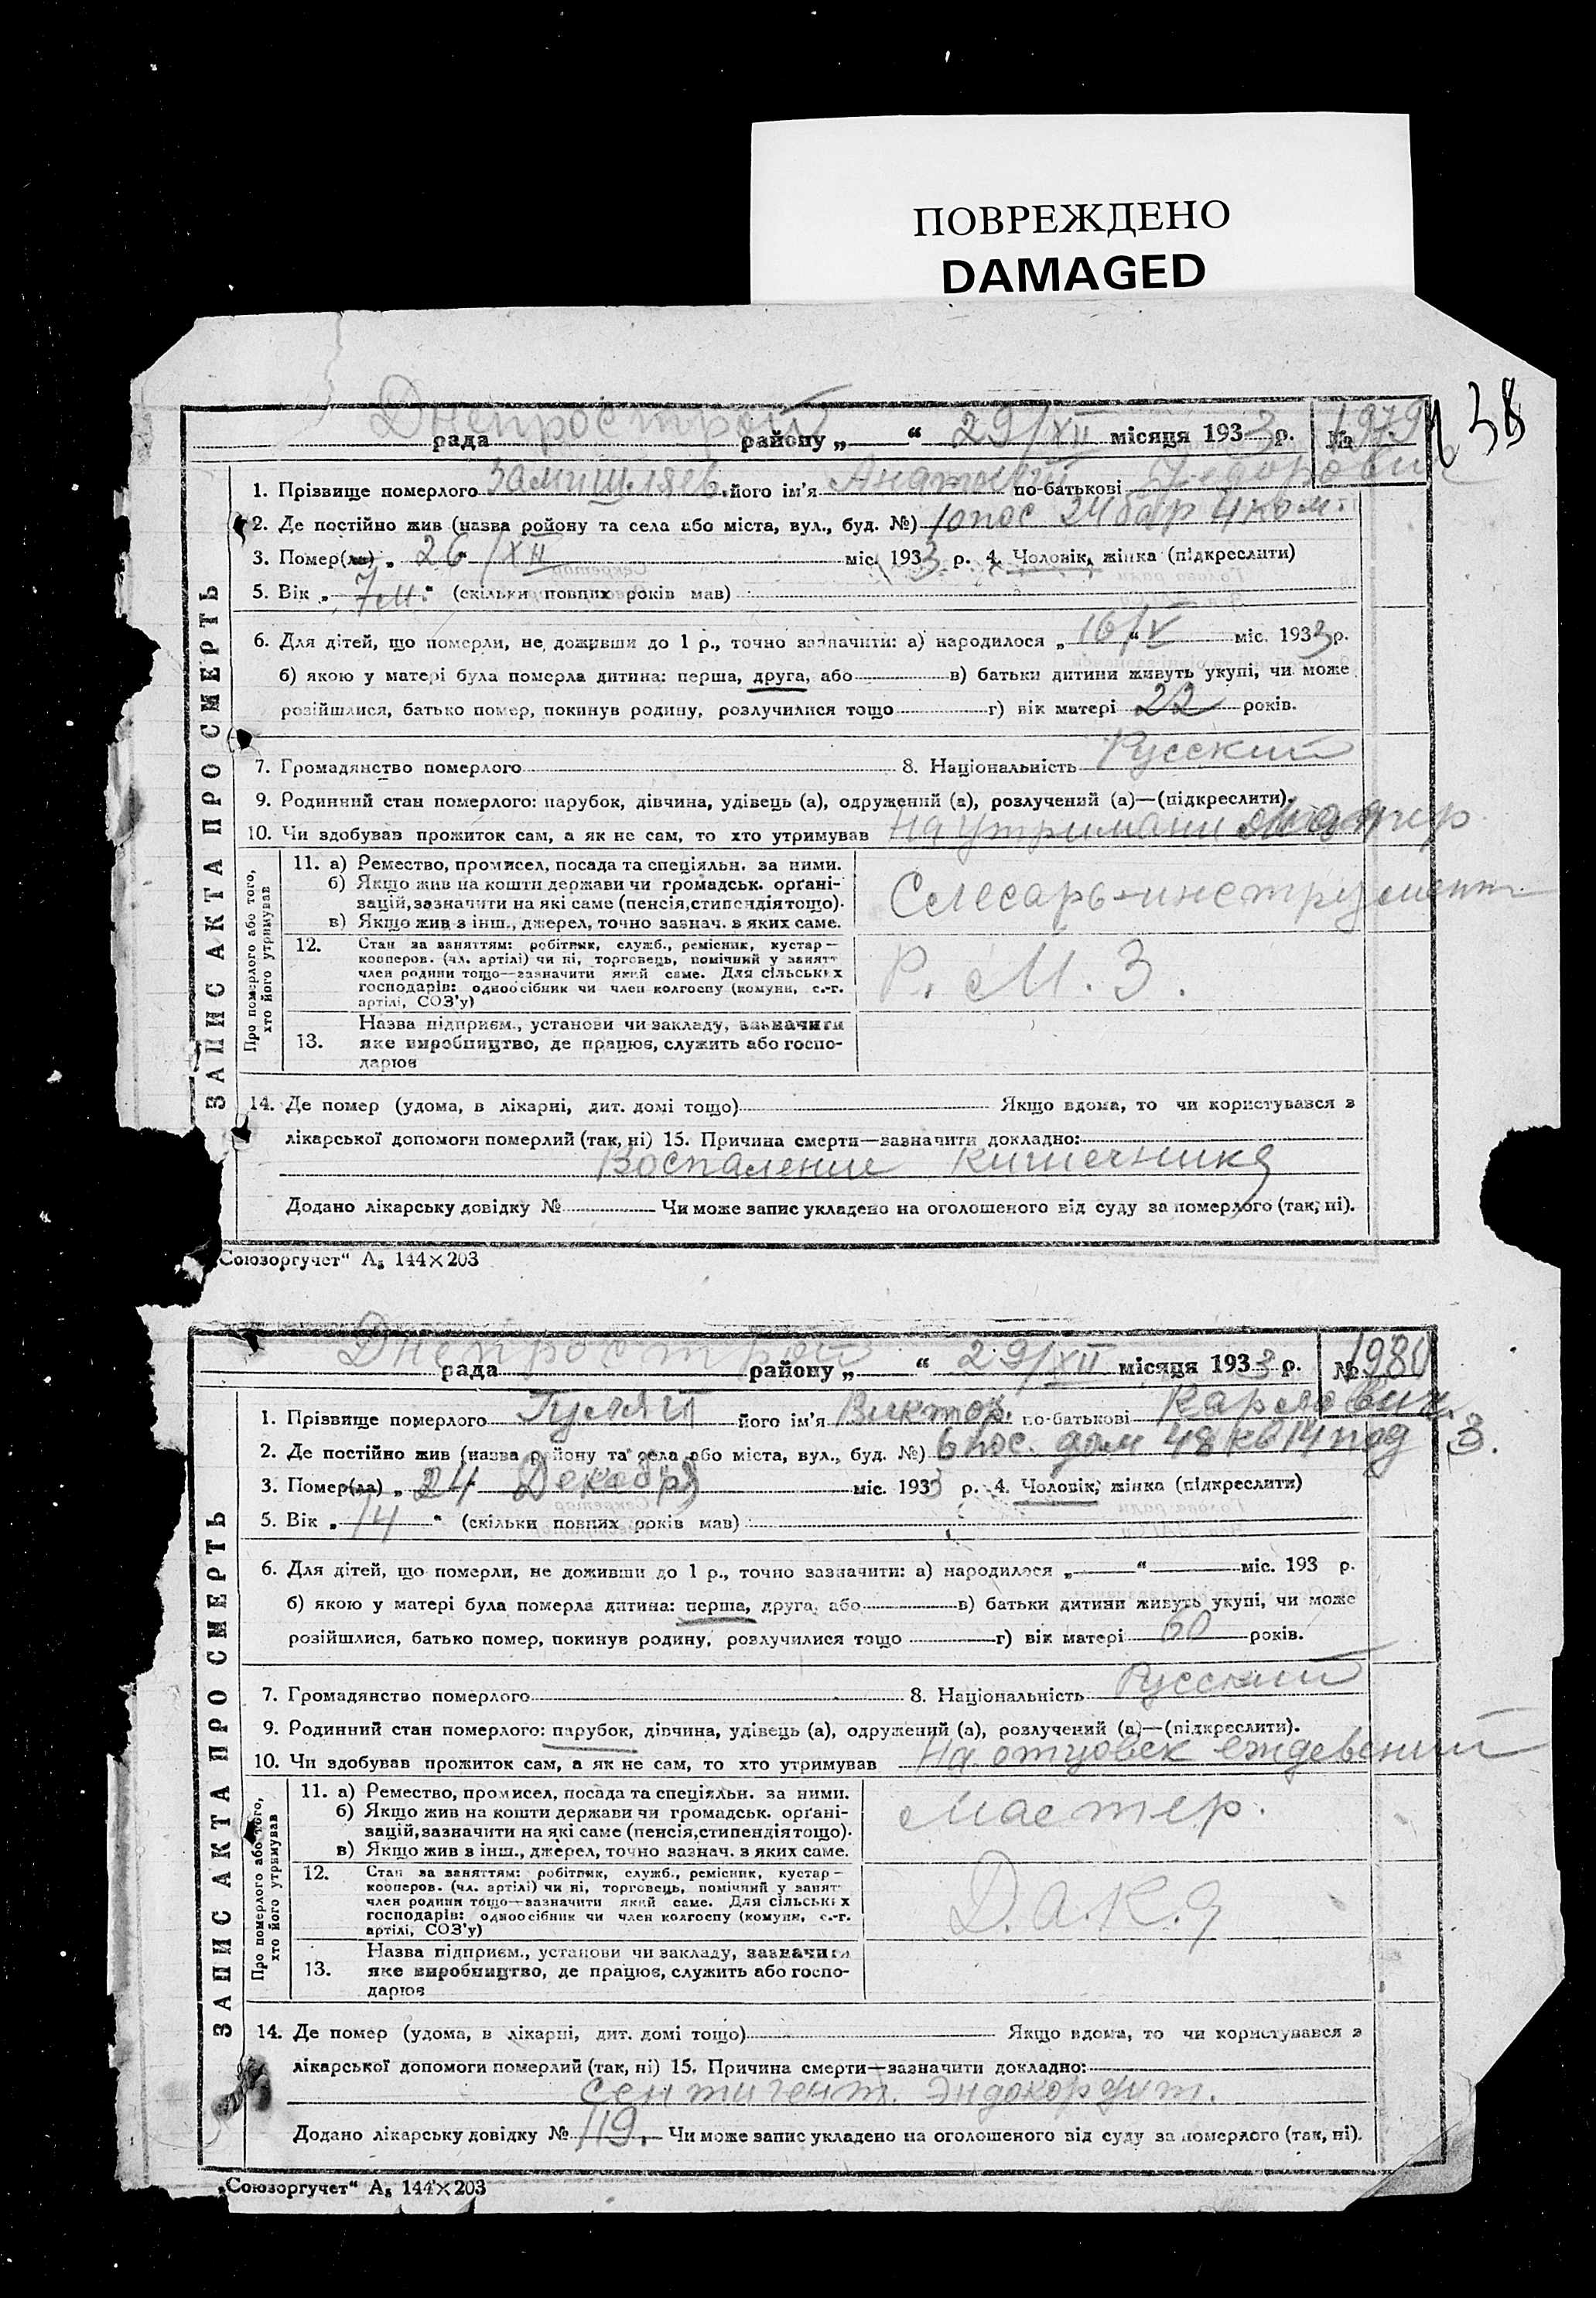 ПОВРЕЖДЕНО
DAMAGED
38
Днепрострой
рада районy „ “ 29/XII місяця 1933 р. № 1979
1. Прізвище померлого Замишляев. його ім'я Анатолій по-батькові Федорович
2. Де постійно жив (назва району та села або міста, вул., буд. №) 10 пос 24 бар 4 ком.
3. Помер(ла) „ 26/XII міс. 1933 р. 4. Чоловік, жінка (підкреслити)
5. Вік „ 7 м. “ (скільки повних років мав)
6. Для дітей, що померли, не доживши до 1 р., точно зазначити: а) народилося „ 16/V міс. 1933 р.
б) якою у матері була померла дитина: перша, друга, або в) батьки дитини живуть укупі, чи може
розійшлися, батько помер, покинув родину, розлучилися тощо г) вік матері 22 років.
7. Громадянство померлого 8. Національність Русский
9. Родинний стан померлого: парубок, дівчина, удівець (а), одружений (а), розлучений (а)—(підкреслити).
10. Чи здобував прожиток сам, а як не сам, то хто утримував На утримани
ЗАПИС АКТА ПРО СМЕРТЬ
Про померлого або того, хто його утримував
11. а) Ремество, промисел, посада та спеціяльн. за ними.
б) Якщо жив на кошти держави чи громадськ. орґані-
зацій, зазначити на які саме (пенсія, стипендія тощо).
в) Якщо жив з інш., джерел, точно зазнач. з яких саме.
Слесарь-инструмент
12. Стан за заняттям: робітник, служб., ремісник, кустар—
кооперов. (чл. артілі) чи ні, торговець, помічний у занят
член родини тощо—зазначити який саме. Для сільських
господарів: одноосібник чи член колгоспу (комуни, с.-г.
артілі, СОЗ'у)
Р. М. З.
13. Назва підприєм., установи чи закладу, зазначити
яке виробництво, де працює, служить або госпо-
дарює
14. Де помер (удома, в лікарні, дит. домі тощо) Якщо вдома, то чи користувався з
лікарської допомоги померлий (так, ні) 15. Причина смерти—зазначити докладно:
Воспаление кишечника
Додано лікарську довідку № Чи може запис укладено на оголошеного від суду за померлого (так, ні).
Союзоргучет“ А5 144×203
Днепрострой
рада району „ “ 29/XII місяця 1933 р. № 1980
1. Прізвище померлого його ім'я Виктор. по-батькові Карлович.
2. Де постійно жив (назва району та села або міста, вул., буд. №) 6 пос. дом 48 кв 14 под 3.
3. Помер(ла) „ 24 Декабря міс. 1933 р. 4. Чоловік, жінка (підкреслити)
5. Вік „ 14 “ (скільки повних років мав)
6. Для дітей, що померли, не доживши до 1 р., точно зазначити: а) народилося „ “ міс. 193 р.
б) якою у матері була померла дитина: перша, друга, або в) батьки дитини живуть укупі, чи може
розійшлися, батько помер, покинув родину, розлучилися тощо г) вік матері 60 років.
7. Громадянство померлого 8. Національність Русский
9. Родинний стан померлого: парубок, дівчина, удівець (а), одружений (а), розлучений (а)—(підкреслити).
10. Чи здобував прожиток сам, а як не сам, то хто утримував На отцовск
ЗАПИС АКТА ПРО СМЕРТЬ
Про померлого або того, хто його утримував
11. а) Ремество, промисел, посада та спеціяльн. за ними.
б) Якщо жив на кошти держави чи громадськ. орґані-
зацій, зазначити на які саме (пенсія, стипендія тощо).
в) Якщо жив з інш., джерел, точно зазнач. з яких саме.
Мастер.
12. Стан за заняттям: робітник, служб., ремісник, кустар—
кооперов. (чл. артілі) чи ні, торговець, помічний у занят
член родини тощо—зазначити який саме. Для сільських
господарів: одноосібник чи член колгоспу (комуни, с.-г.
артілі, СОЗ'у)
13. Назва підприєм., установи чи закладу, зазначити
яке виробництво, де працює, служить або госпо-
дарює
14. Де помер (удома, в лікарні, дит. домі тощо) Якщо вдома, то чи користувався з
лікарської допомоги померлий (так, ні) 15. Причина смерти—зазначити докладно:
Эндокордит.
Додано лікарську довідку № 119. Чи може запис укладено на оголошеного від суду за померлого (так, ні).
„Союзоргучет“ А5 144×203